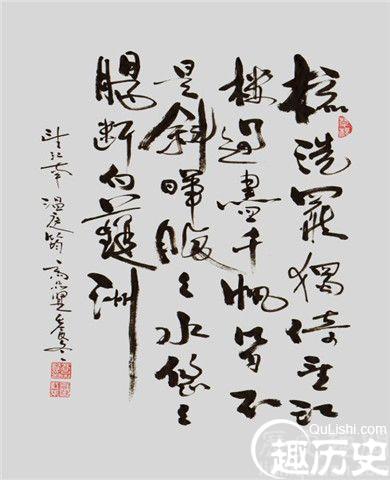 梳洗罷獨倚望江
樓過盡千帆皆不
是斜暉脉々水悠々
腸断白蘋洲
望江南 温庭筠
QuLishi.com
趣历史